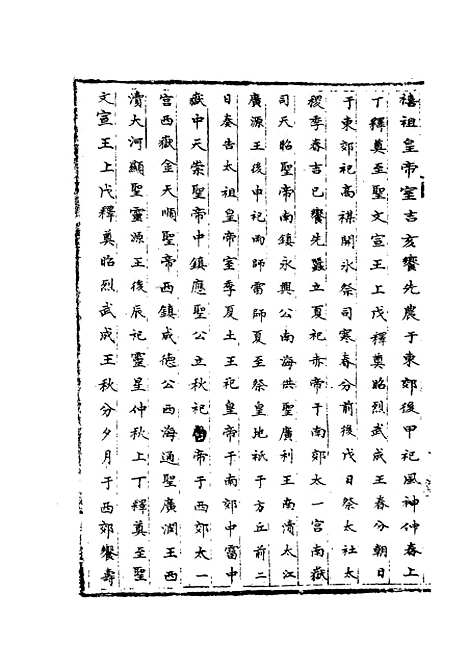 禧祖皇帝室吉亥饗先農于東郊後甲祀風神仲春上
丁釋奠至聖文宣王上戊釋奠昭烈武成王春分朝日
于東郊祀高禖開氷祭司寒春分前後戊日祭太社太
稷季春吉巳饗先蠶立夏祀赤帝于南郊太一宮南嶽
司天昭聖帝南鎮永興公南海洪聖廣利王南瀆太江
廣源王後申祀雨師雷師夏至祭皇地祇于方丘前二
日奏告太祖皇帝室季夏土王祀皇帝于南郊中霤中
嶽中天崇聖帝中鎮應聖公立秋祀白帝于西郊太一
宮西嶽金天順聖帝西鎮成德公西海通聖廣潤王西
瀆大河顯聖靈源王後辰祀靈星仲秋上丁釋奠至聖
文宣王上戊釋奠昭烈武成王秋分夕月于西郊饗壽